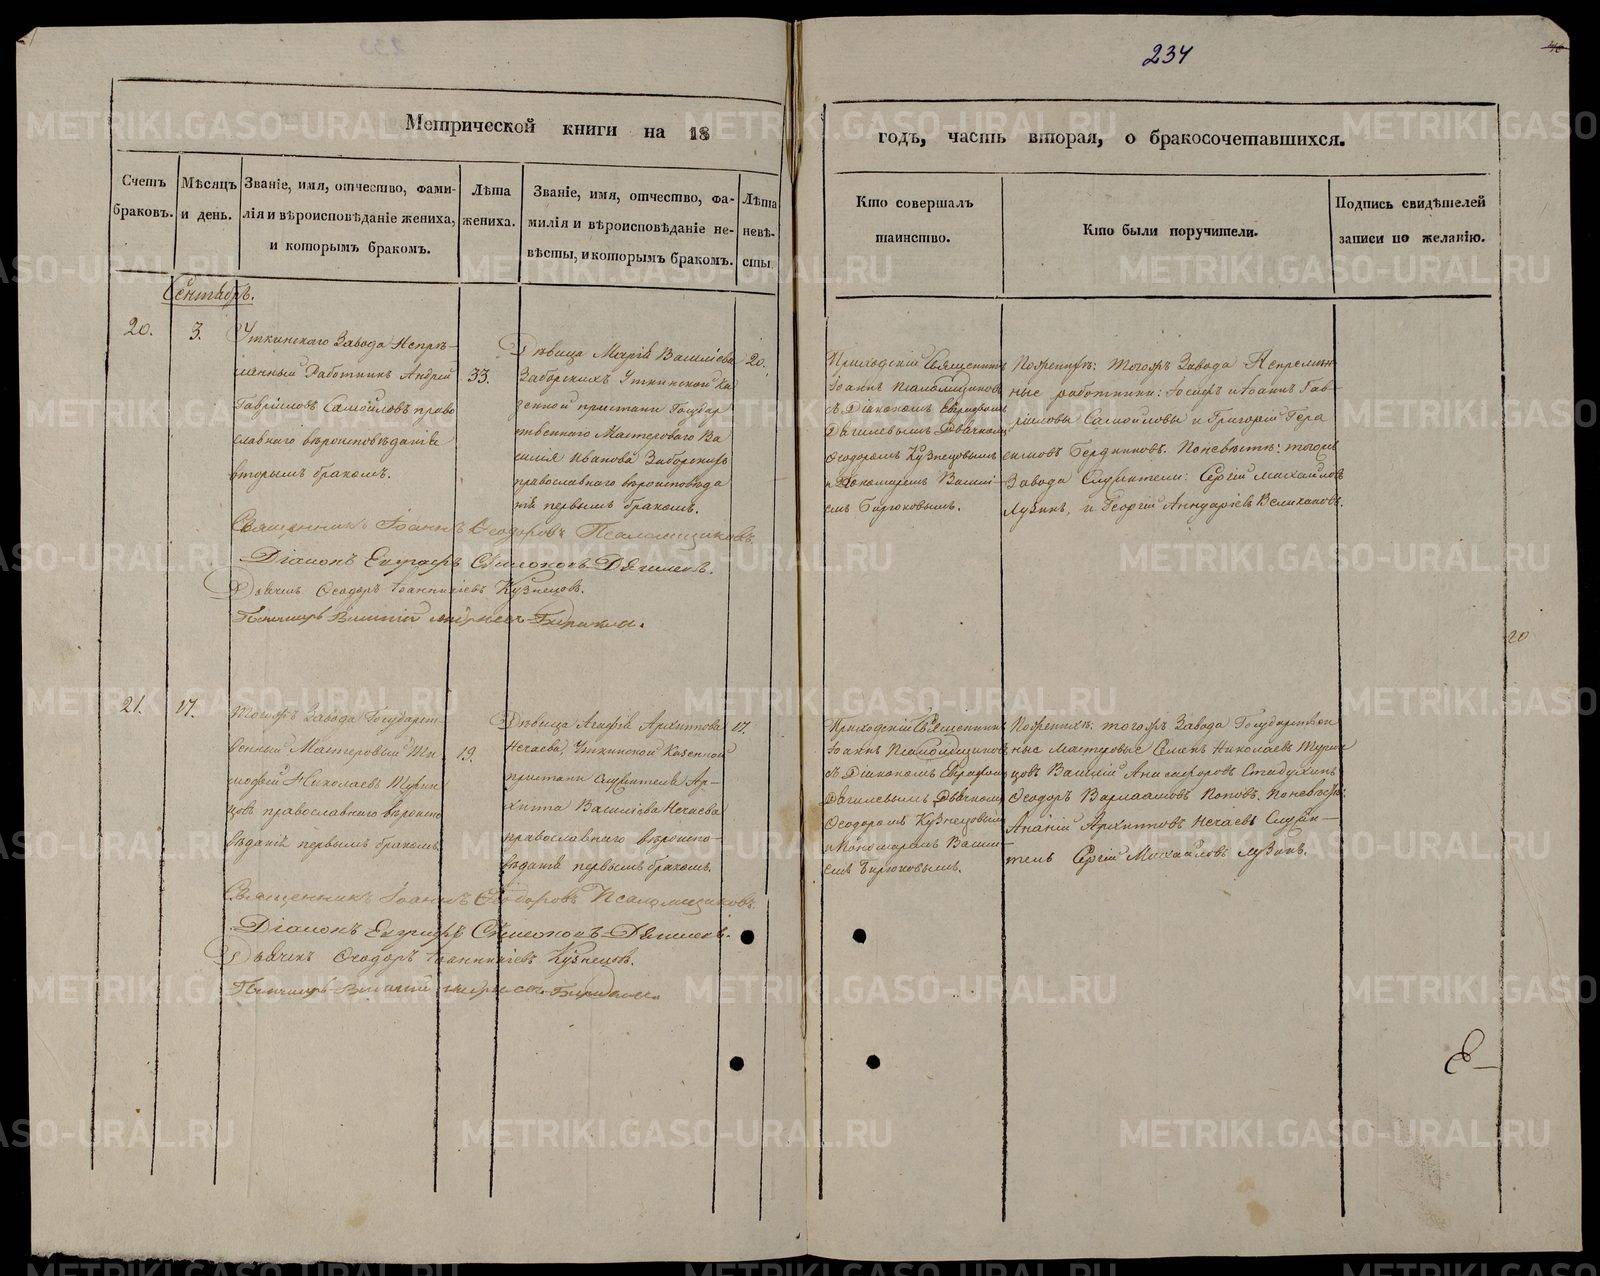 234
Метрической книги на 18
годъ, часть вторая, о бракосочетавшихся.
Счетъ браковъ.
Мѣсяцъ и день.
Званіе, имя, отчество, фами-
лія и вѣроисповѣданіе жениха,
и которымъ бракомъ.
Лѣта жениха.
Званіе, имя, отчество, фа-
милія и вѣроисповѣданіе не-
вѣсты, и которымъ бракомъ.
Лѣта невѣ-
сты.
Кто совершалъ
таинство.
Кто были поручители.
Подпись свидѣтелей
записи по желанію.
Сентябрь.
20.
3.
Уткинскаго Завода Непре-
мѣнный Работникъ Андрей
Гавріиловъ Самойловъ право
славнаго вѣроисповѣданія
вторымъ бракомъ.
33.
Дѣвица Марія Василіева
Заборскихъ Уткинской Ка
зенной пристани Государ
ственнаго Мастероваго Ва
силія Иванова Заборскихъ
православнаго вѣроисповѣда
нія первымъ бракомъ.
20.
Приходскій Священникъ
Іоаннъ Псаломщиковъ
съ Діакономъ Евграфомъ
Дягилевымъ Дьячкомъ
Ѳеодоромъ Кузнецовымъ
и Пономаремъ Васил-
емъ Бирюковымъ.
По женихѣ: тогожъ Завода Непремѣн
ные работники: Іосифъ и Іоаннъ Гав-
ріиловы Самойловы и Григорій Гера
симовъ Бердниковъ. По невѣстѣ: тогожъ
Завода Служители: Сергій Михайловъ
Лузинъ, и Георгій Велихановъ.
Священникъ Іоаннъ Ѳеодоровъ Псаломщиковъ.
Діаконъ Евграфъ Симеоновъ Дягилевъ.
Дьячекъ Ѳеодоръ Іоанникіевъ Кузнецовъ.
Пономарь Василій Бирюковъ.
20
21.
17.
Тогожъ Завода Государст-
венный Мастеровый Ти-
моѳей Николаевъ Турин
цовъ православнаго вѣроиспо
вѣданія первымъ бракомъ.
19.
Дѣвица Агафія Архипова
Нечаева, Уткинской Казенной
пристани служителя Ар-
хипа Василіева Нечаева
православнаго вѣроиспо-
вѣданія первымъ бракомъ.
17.
Приходскій Священникъ
Іоаннъ Псаломщиковъ
съ Діакономъ Евграфомъ
Дягилевымъ Дьячкомъ
Ѳеодоромъ Кузнецовымъ
и Пономаремъ Васил-
емъ Бирюковымъ.
По женихѣ: тогожъ Завода Государствен
ные мастеровые Семенъ Николаевъ Турин
цовъ Василій Никифоровъ Стадухинъ
Ѳеодоръ Варлаамовъ Поповъ. По невѣстѣ:
Ананій Архиповъ Нечаевъ Служи-
тель Сергій Михайловъ Лузинъ.
Священникъ Іоаннъ Ѳеодоровъ Псаломщиковъ.
Діаконъ Евграфъ Симеоновъ Дягилевъ.
Дьячекъ Ѳеодоръ Іоанникіевъ Кузнецовъ.
Пономарь Василій Бирюковъ.
METRIKI.GASO-URAL.RU